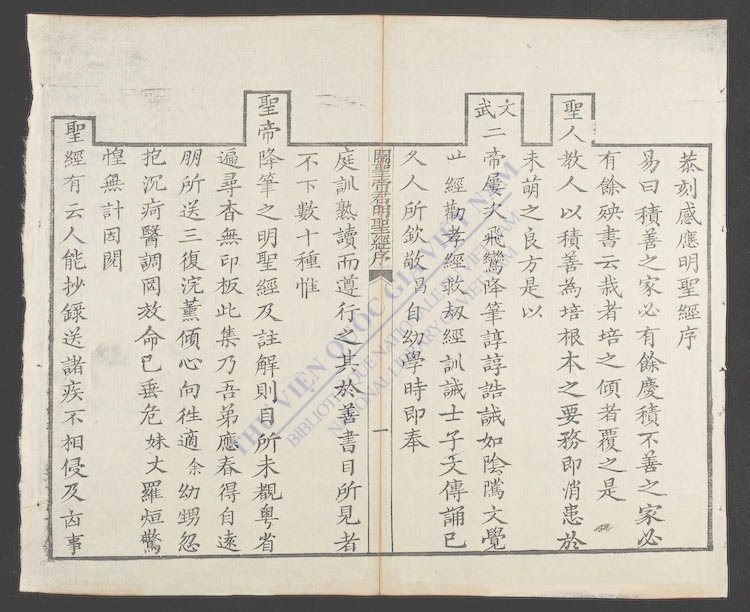 恭刻感應明聖經序
易曰積善之家必有餘慶積不善之家必
有餘殃書云栽者培之傾者覆之是
聖人教人以積善為培根本之要務即消患於
未萌之良方是以
文武二帝屢次飛鸞降筆諄諄誥誡如陰隲文覺
世經勸孝經救劫經訓誡士子文傳誦已
久人所欽敬焉自幼學時即奉
關聖帝君明聖經序
一
庭訓熟讀而遵行之其於善書目所見者
不下數十種惟
聖帝降筆之明聖經及註解則目所未覩粵省
遍尋杳無印板此集乃吾弟應春得自遠
朋所送三復浣薰傾心向徃適余幼甥忽
抱沉疴醫調罔效命已垂危妹丈羅烜驚
惶無計因閱
聖經有云人能抄錄送諸疾不相侵及凶事
THƯ VIỆN QUỐC GIA VIỆT NAM
BIBLIOTHÈQUE NATIONALE DU VIETNAM
NATIONAL LIBRARY OF VIETNAM